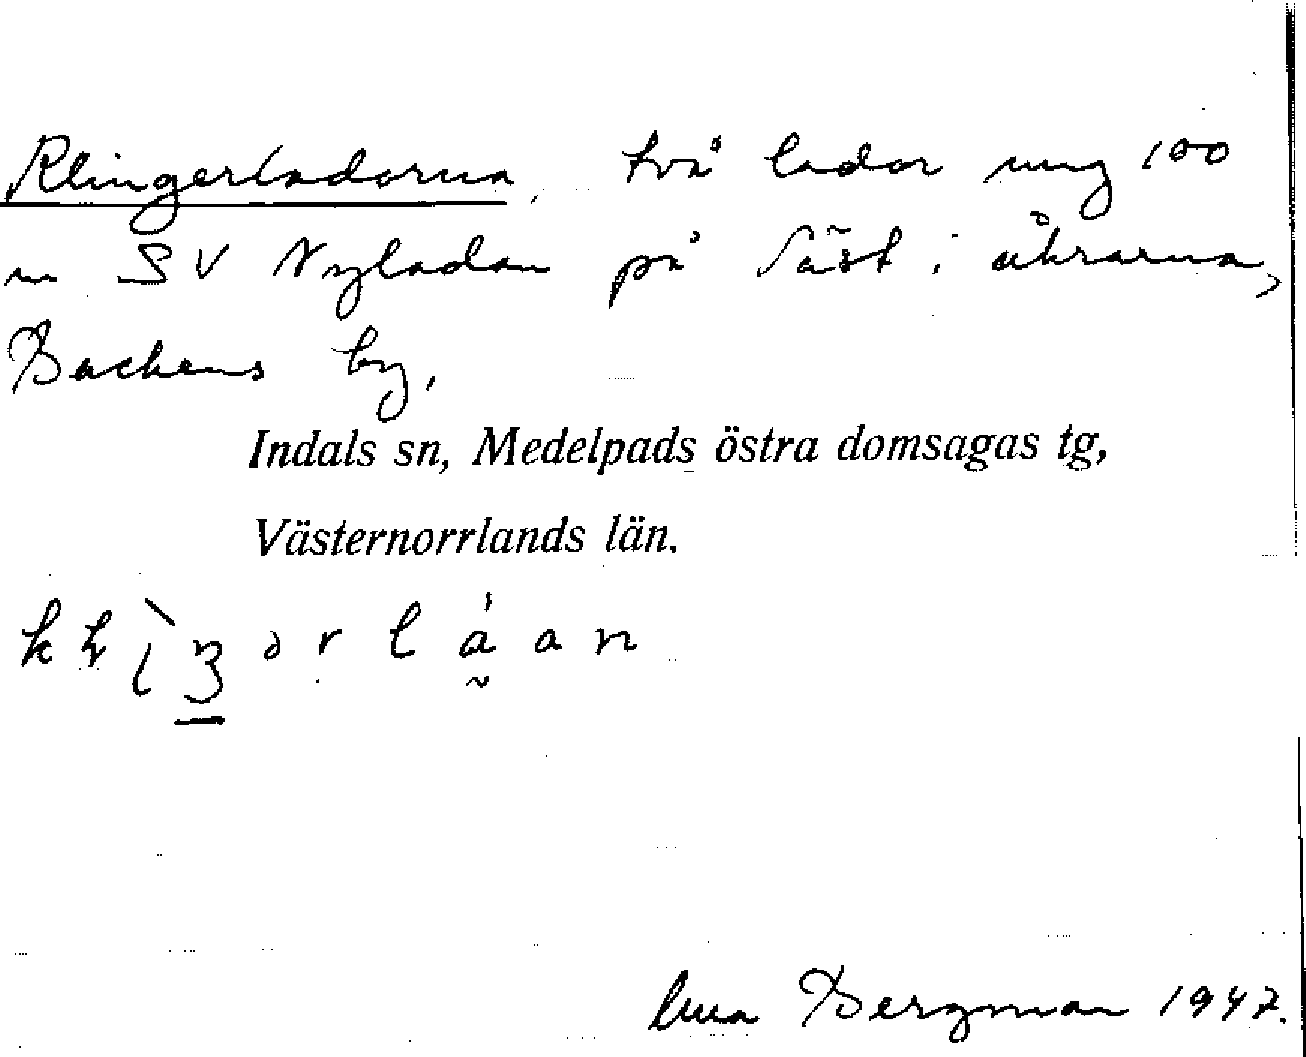 Klingerladorna, två lador ung 100
m SV Nyladan på Väst i åkrarna,
Backens by,
Indals sn, Medelpads östra domsagas tg,
Västernorrlands län.
Bergman 1947.